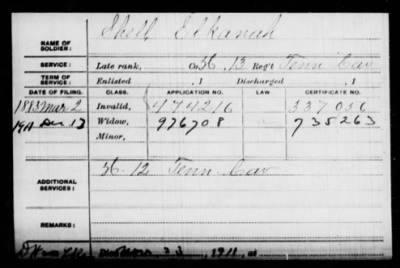 NAME OF SOLDIER: Shell Elkanah
SERVICE: Late rank, Co. 13 Reg't Tenn Cav
TERM OF SERVICE: Enlisted , 1 Discharged , 1
DATE OF FILING. CLASS. APPLICATION NO. LAW CERTIFICATE NO.
1883 Mar 2 Invalid, 474216 337056
1911 Dec 13 Widow, 976708 735263
Minor,
ADDITIONAL SERVICES: 12 Tenn Cav
REMARKS:
1911, at